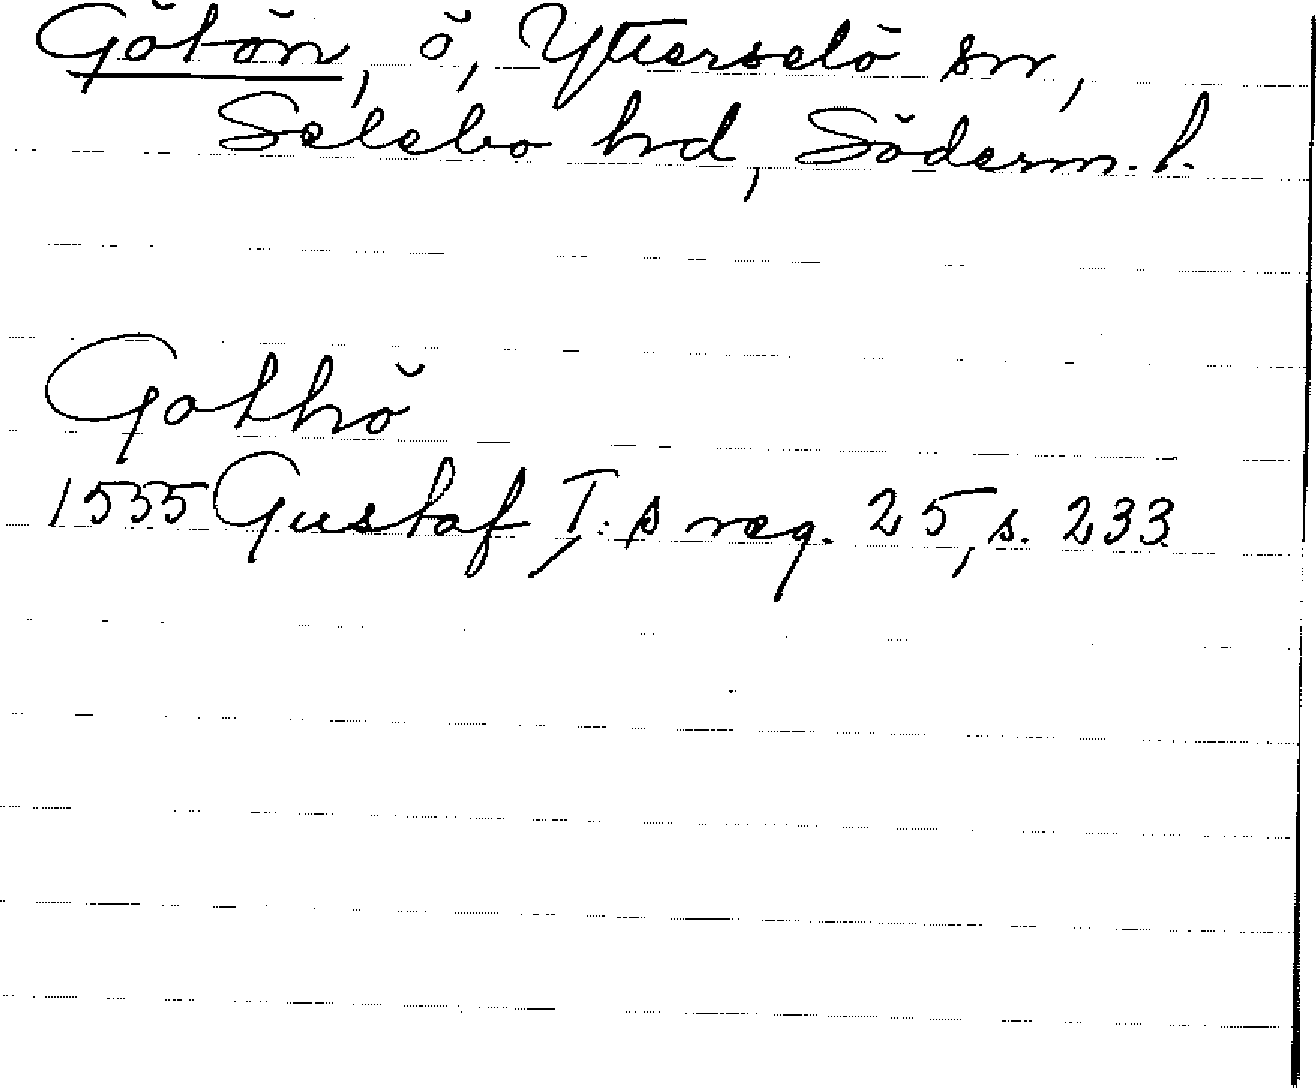 Götön, ö, Ytterselö sn,
Selebo hd, Söderm. l.
Gothö
1535 Gustaf I:s reg. 25, s. 233